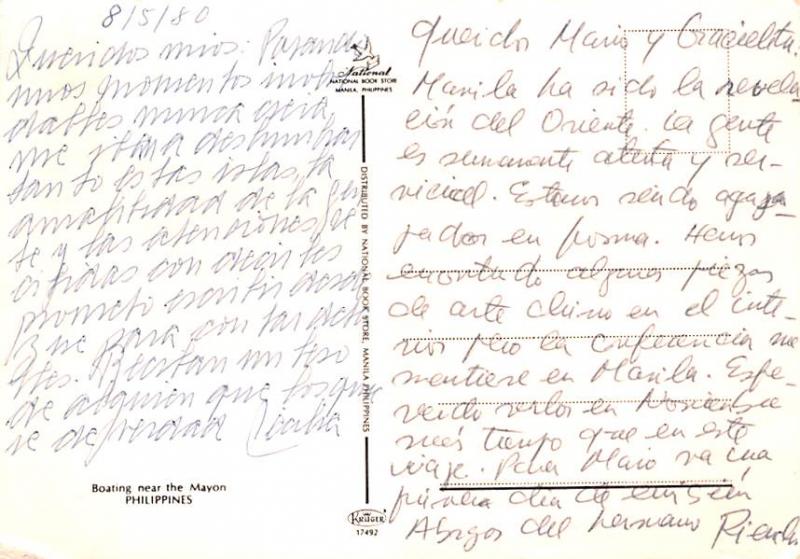 8/5/80
Queridos mios: Pasando
unos momentos inolvi
dables nunca creí
me iban a deslumbrar
tanto estas islas, la
amabilidad de la gen
te y las atenciones re
cibidas con decirles
prometo escribir desde
Z
con
Reciban un beso
de alguien que los quie
re de verdad Cecilia
National
NATIONAL BOOK STORE
MANILA, PHILIPPINES
DISTRIBUTED BY NATIONAL BOOK STORE, MANILA PHILIPPINES
Boating near the Mayon
PHILIPPINES
KRÜGER
17492
Queridos Mario y Gracielita.
Manila ha sido la revela
ción del Oriente. La gente
es sumamente atenta y ser-
vicial. Estamos siendo agasa
jados en forma. Hemos
encontrado algunas piezas
de arte chino en el inte-
rior pero la conferencia me
mantiene en Manila. Espe-
rando verlos en Noviembre
más tiempo que en este
viaje. Para Mario va una
primera día de emisión
Abrazos del hermano Ricardo